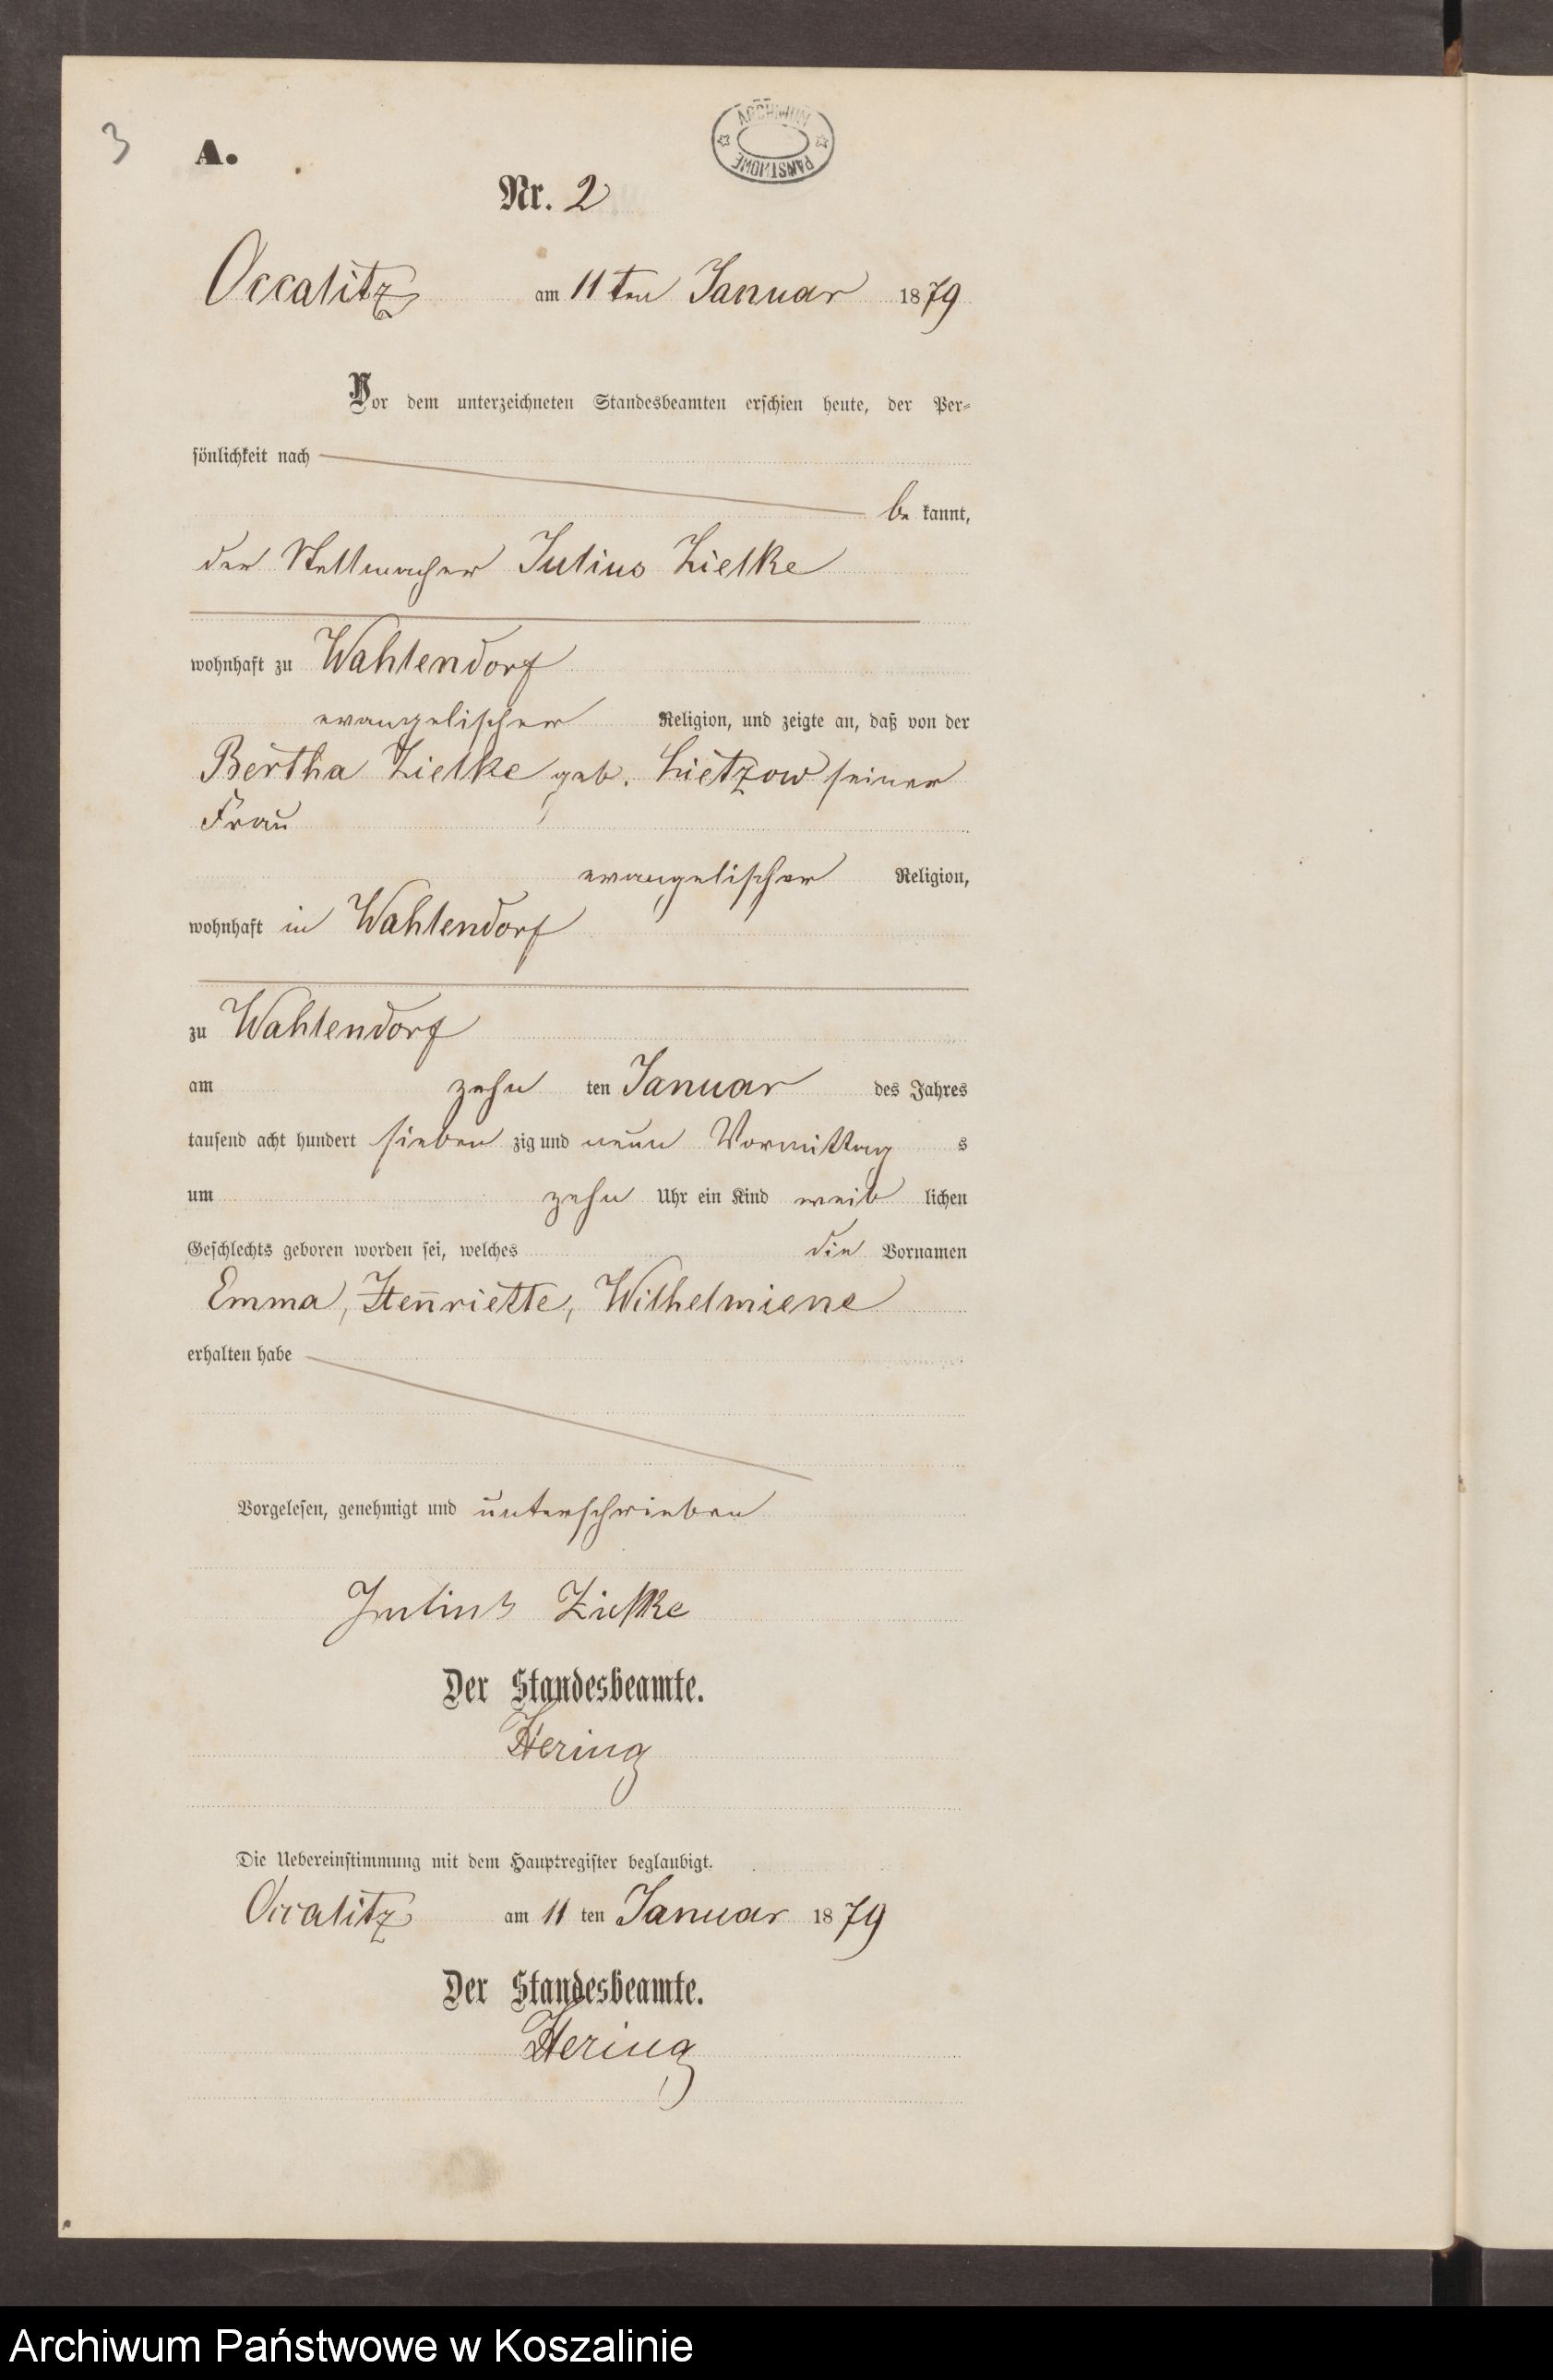 3
A.
ARCHIWUM PAŃSTWOWE
Nr. 2
Occalitz am 11ten Januar 1879
Vor dem unterzeichneten Standesbeamten erschien heute, der Per-
sönlichkeit nach
be kannt,
der Stellmacher Julius Zielke
wohnhaft zu Wahlendorf
evangelischer Religion, und zeigte an, daß von der
Bertha Zielke geb. Lietzow seiner
Frau
evangelischer Religion,
wohnhaft in Wahlendorf
zu Wahlendorf
am zehn ten Januar des Jahres
tausend acht hundert sieben zig und neun Vormittag s
um zehn Uhr ein Kind weib lichen
Geschlechts geboren worden sei, welches die Vornamen
Emma, Henriette, Wilhelmiene
erhalten habe
Vorgelesen, genehmigt und unterschrieben
Julius Zielke
Der Standesbeamte.
Hering
Die Uebereinstimmung mit dem Hauptregister beglaubigt.
Occalitz am 11 ten Januar 1879
Der Standesbeamte.
Hering
Archiwum Państwowe w Koszalinie